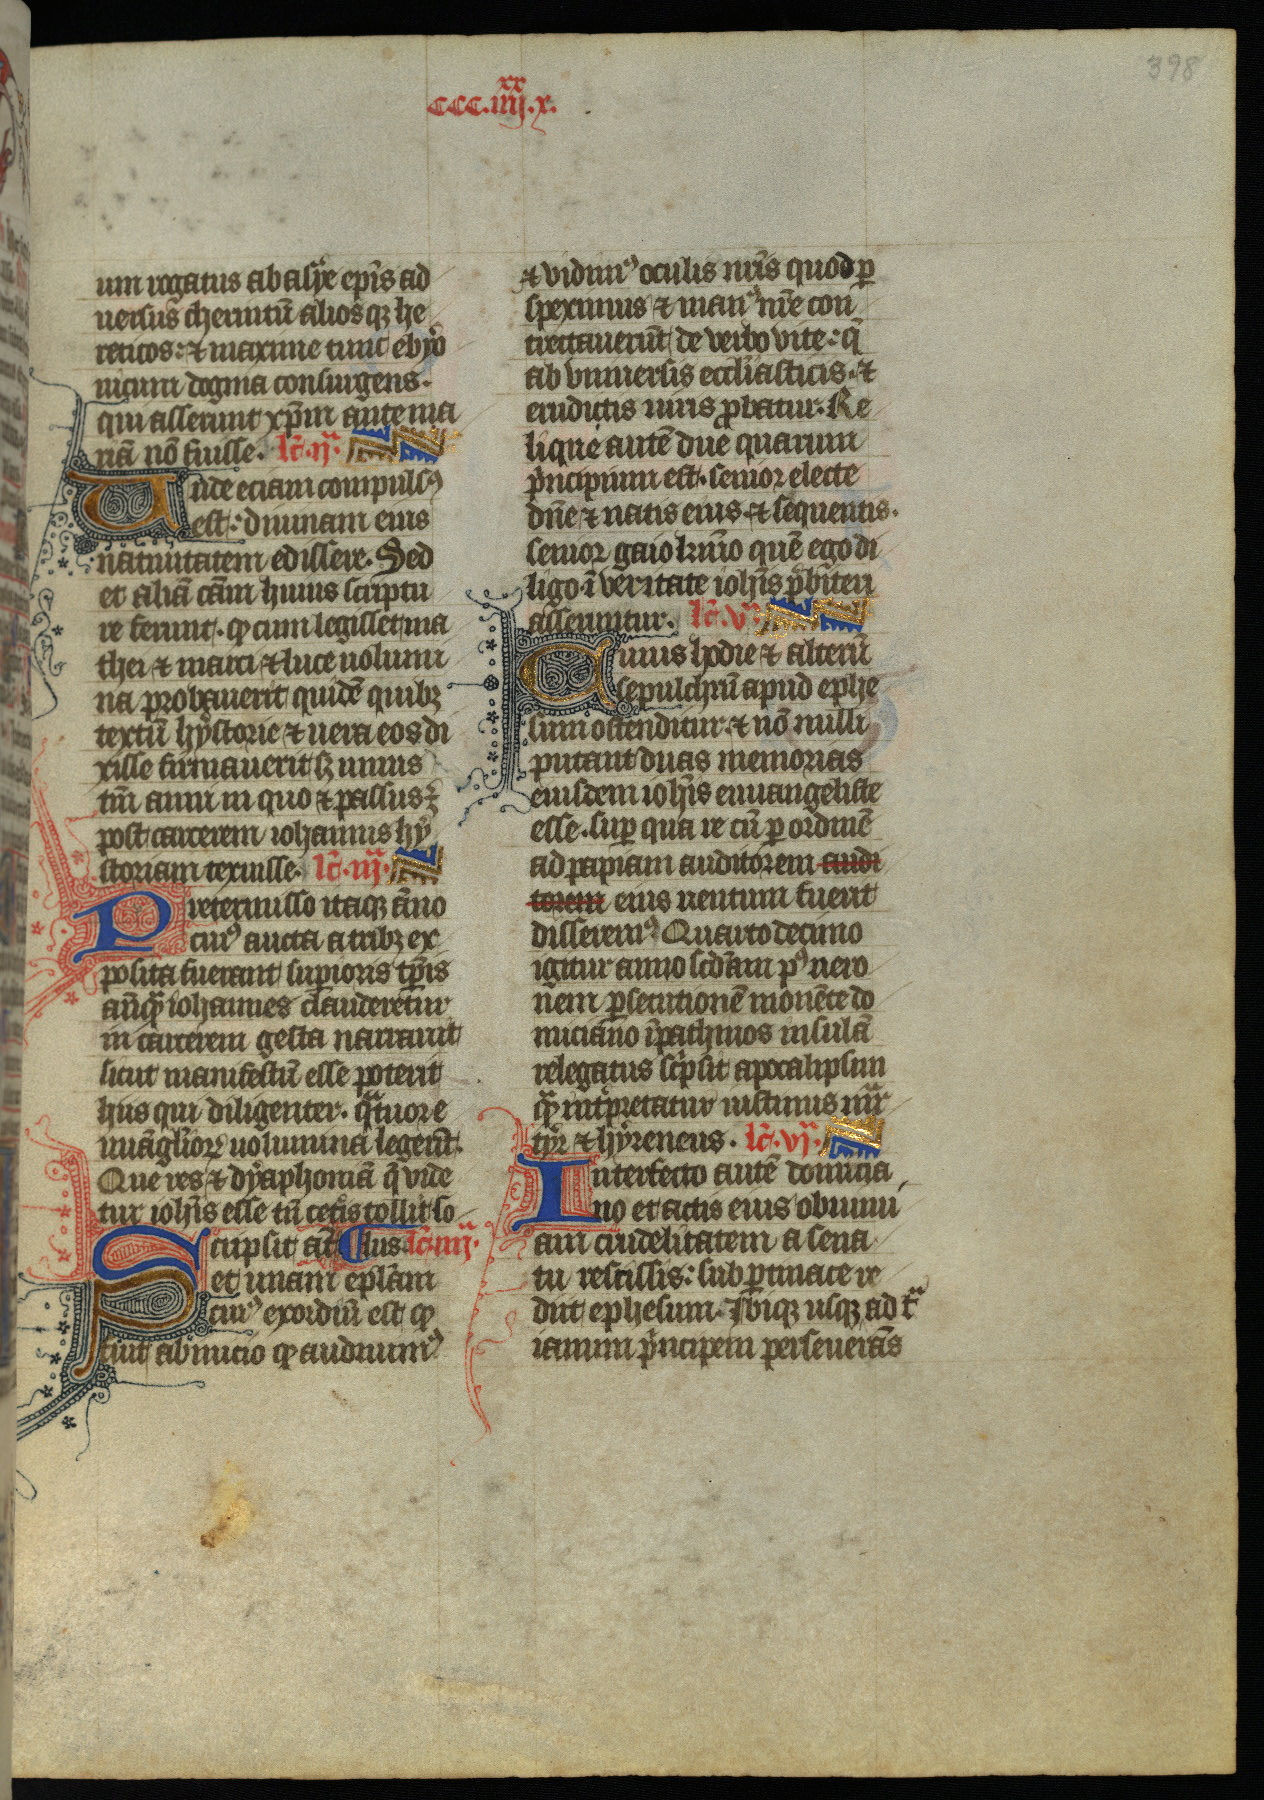 398
xx
ccc.iiij.x.
um rogatus ab asye ep̄is ad
uersus cherintū aliosqꝫ he
reticos: ⁊ maxime tunc ebyo
nitum dogma consurgens.
qui asserunt xp̄m ante ma
riā nō fuisse. lc̄.ij.ᵃ
Unde eciam compulsꝰ
est: diuinam eius
natiuitatem edissere. Sed
et aliā cām huius scriptu
re ferunt. ꝙ cum legisset ma
thei ⁊ marci ⁊ luce uolumi
na probauerit quidē quibꝫ
textū hystorie ⁊ uera eos di
xisse firmauerit sꝫ unius
tm̄ anni in quo ⁊ passus ē
post carcerem iohannis hy
storiam texuisse. lc̄.iij.ᵃ
Pretermisso itaqꝫ āno
cuiꝰ aucta a tribꝫ ex
posita fuerant suꝑioris tp̄is
anq̄ꝫ iohannes clauderetur
in carcerem gesta narrauit
sicut manifestū esse poterit
hiis qui diligenter. qᵃtuor e
uuāglioꝝ uolumina legerūt.
Que res ⁊ dyaphoniā q̄ vide
tur ioh̄is esse cū cet̄is tollit so
Scripsit at̄ Clus. lc̄.iiij.ᵃ
et unam ep̄lam
cuiꝰ exordiū est ꝙ
fuit ab inicio ꝙ audiuimꝰ
⁊ vidimꝰ oculis nr̄is quod ꝑ
speximus ⁊ manꝰ nr̄e con
trectauerūt de verbo vite: q̄
ab vniuersis eccl̄iasticis. ⁊
eruditis uiris ꝓbatur. Re
lique autē due quarum
pͥncipium est. senior electe
dn̄e ⁊ natis eius. ⁊ sequentis.
senior gaio kmō quē ego di
ligo ī veritate ioh̄is p̄b̄iteri
asseruntur. lc̄.v.ᵃ
Cuius hodie ⁊ alterū
sepulchrū apud ephe
sum ostenditur. ⁊ nō nulli
putant duas memorias
eiusdem ioh̄is euuangeliste
esse. suꝑ qua re cū ꝑ ordinē
ad papiam auditorem audi
torem eius uentum fuerit
disseremꝰ Quarto decimo
igitur anno scdām pꝰ nero
nem ꝑsecutionē mouēte do
miciano ī pathmos insulā
relegatus scͥpsit apocalipsim
q̄ꝫ intͥpretatur iustinus mᵃr
tyr ⁊ hyreneus. lc̄.vj.ᵃ
Interfecto autē domicia
no et actis eius ob nimi
am crudelitatem a sena
tu rescissis: sub ꝑtinace re
diit ephesum. Ibiqꝫ usqꝫ ad tᵃ
ianum pͥncipem perseuerās